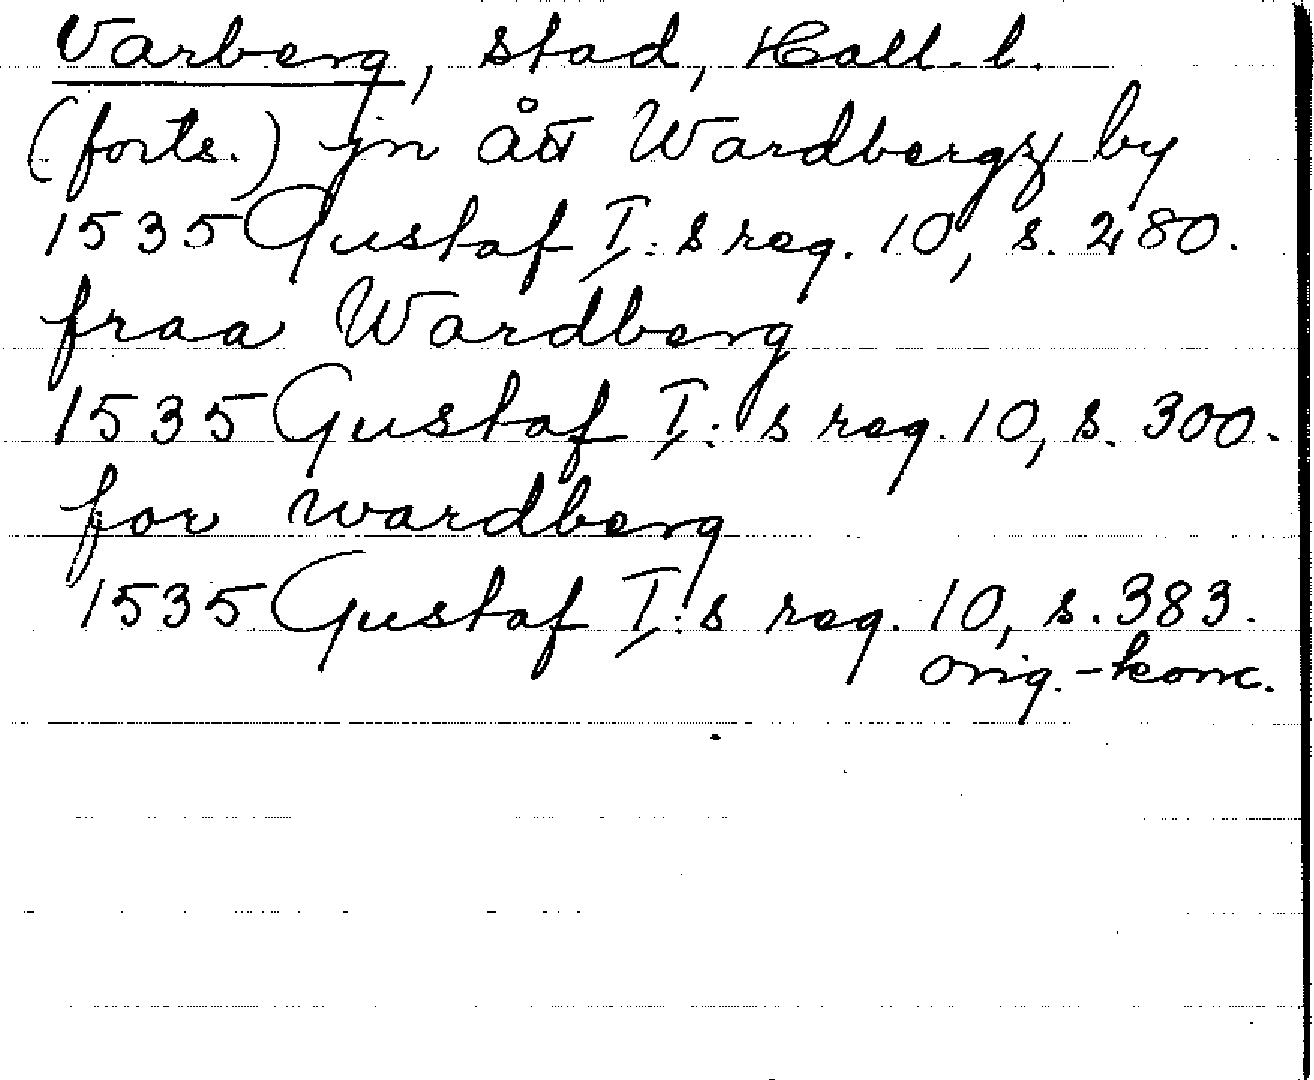 Varberg, stad, Hall. l.
(forts.) jn ått Wardbergz by
1535 Gustaf I:s reg. 10, s. 280.
fraa Wardberg
1535 Gustaf I:s reg. 10, s. 300.
for wardberg
1535 Gustaf I:s reg. 10, s. 383.
orig.-konc.